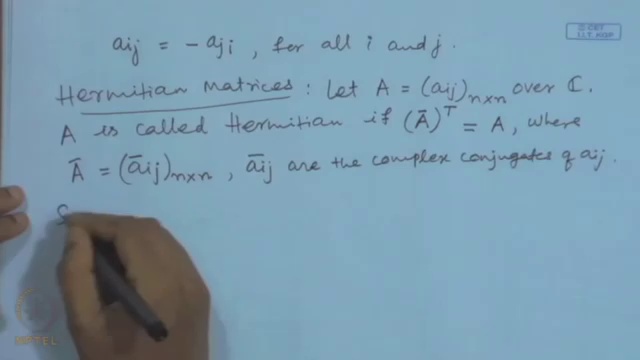 © CET
I.I.T. KGP
aij = - aji , for all i and j.
Hermitian Matrices : Let A = (aij)n×n over ℂ.
A is called Hermitian if (Ā)ᵀ = A, where
Ā = (āij)n×n , āij are the complex conjugates of aij.
S
NPTEL